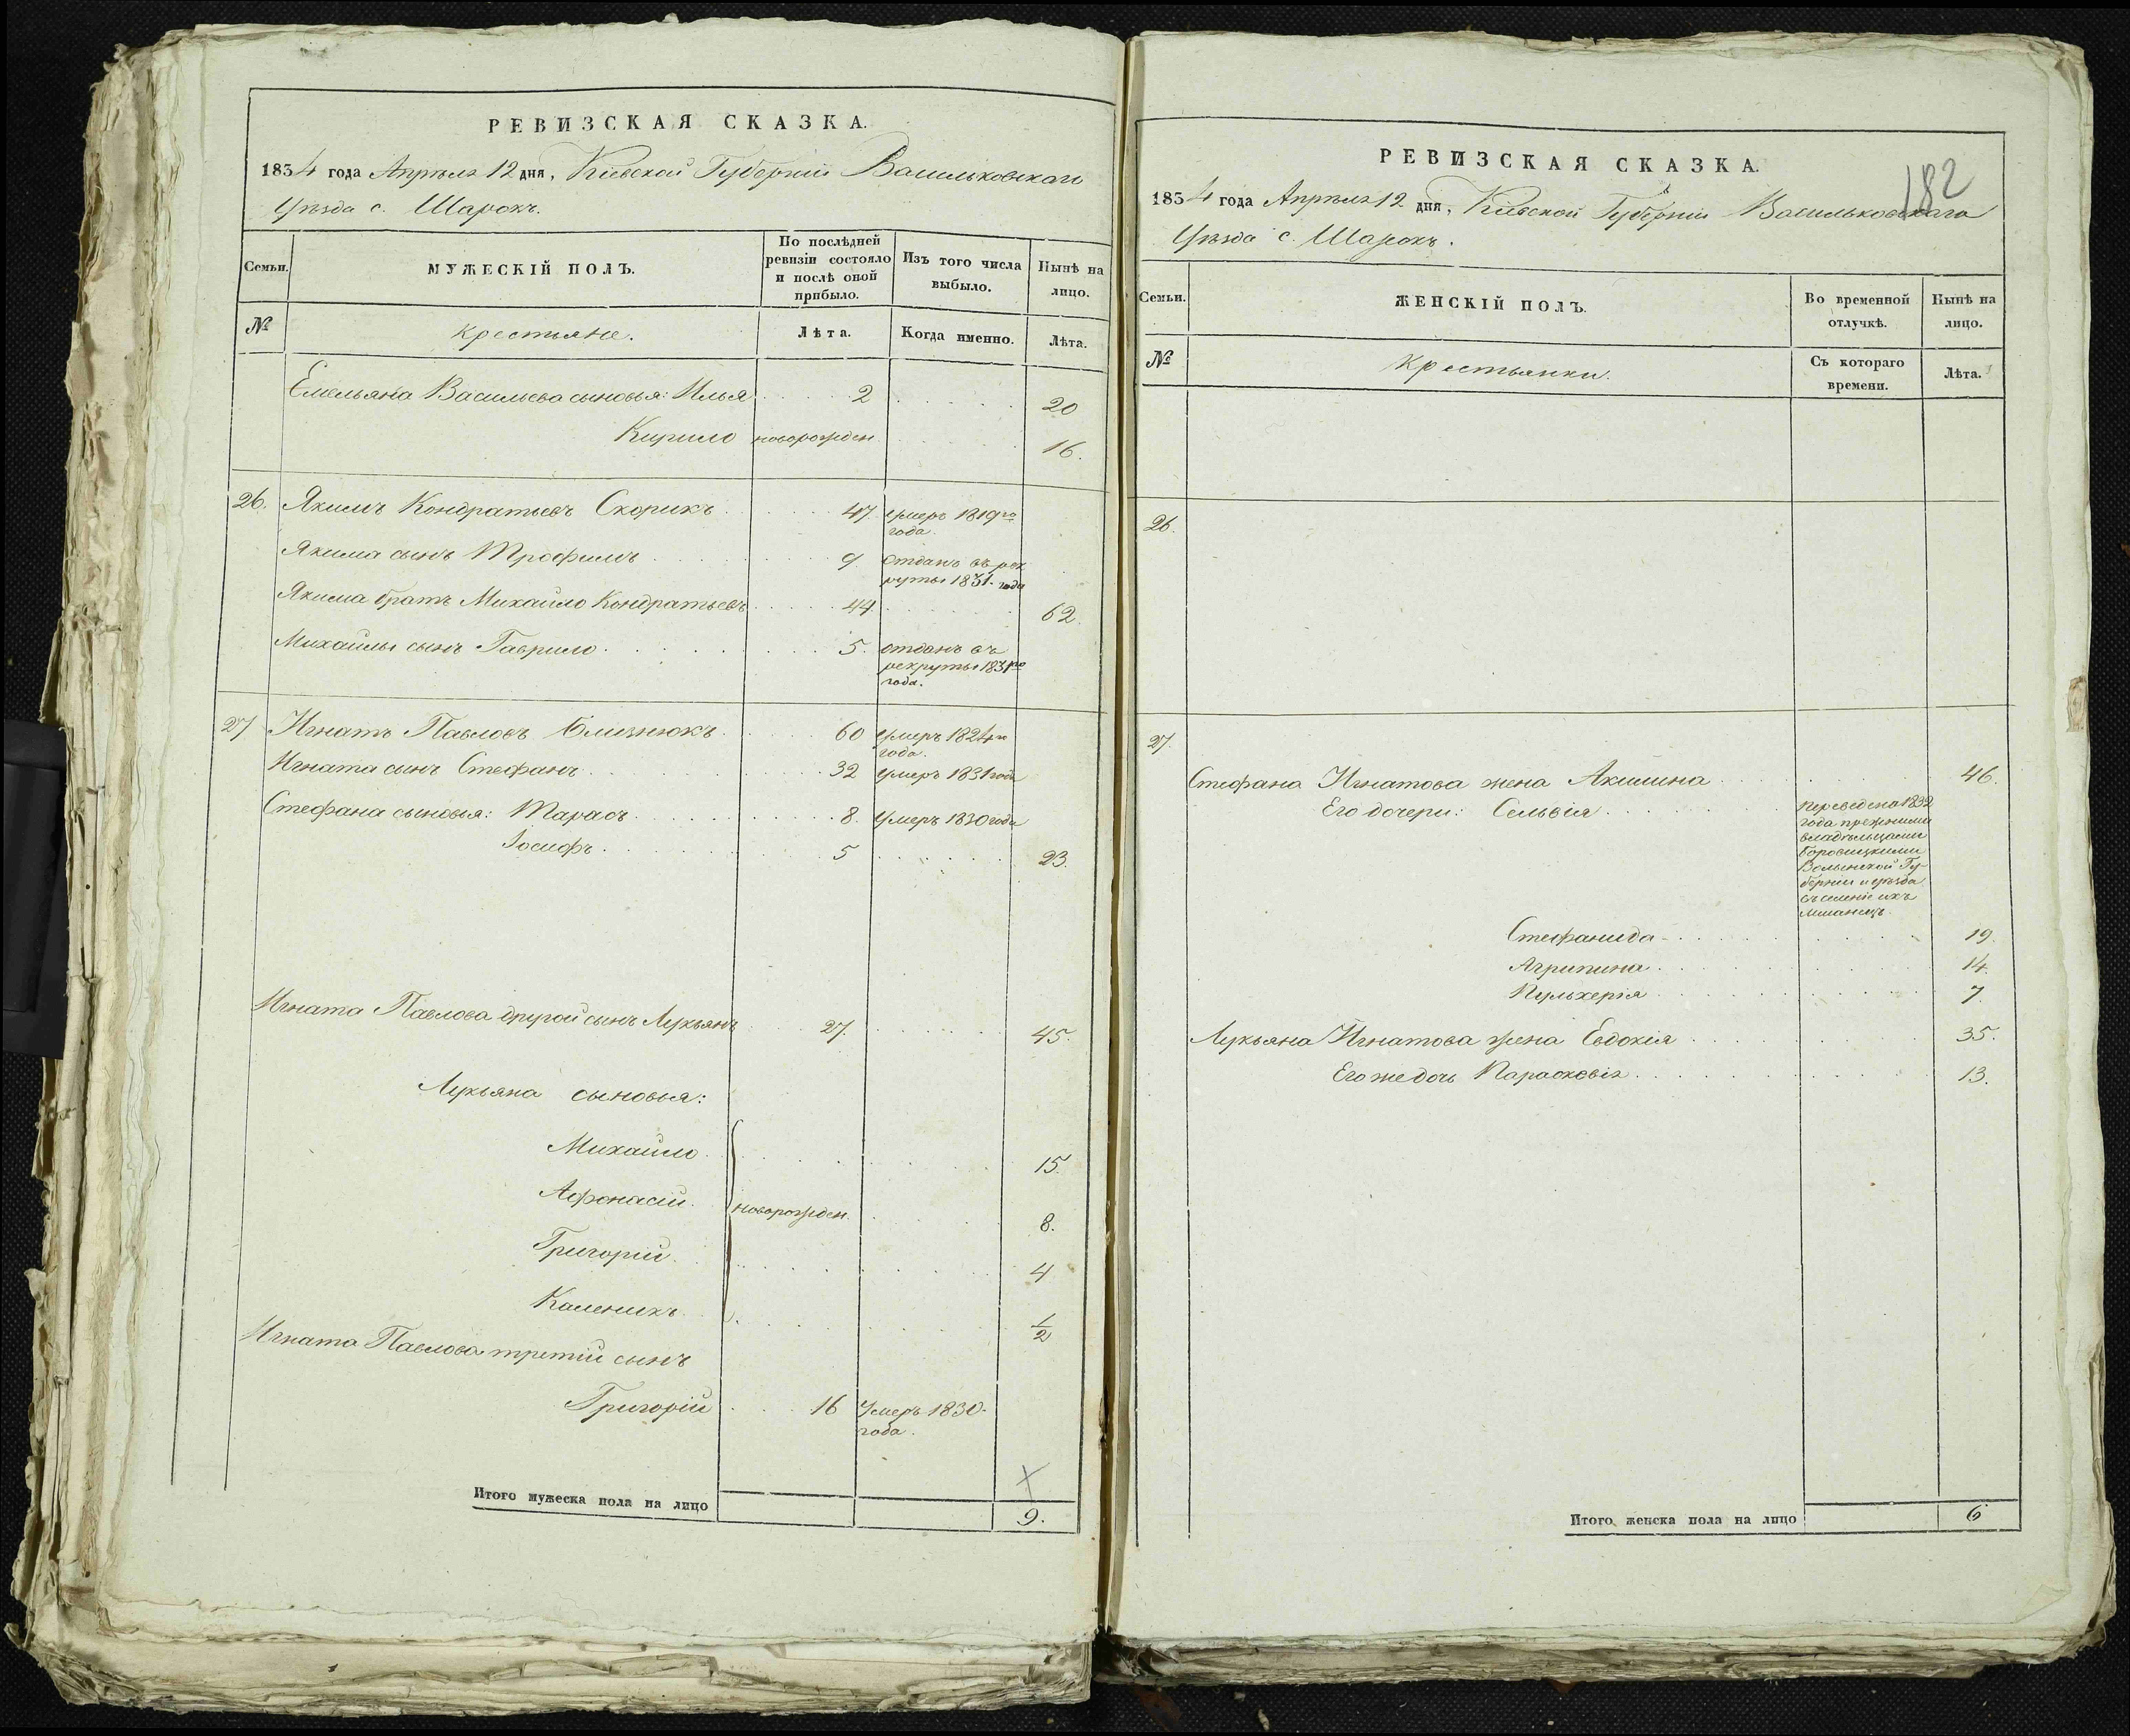 РЕВИЗСКАЯ СКАЗКА.
1834 года Апрѣля 12 дня, Кіевской Губерніи Васильковскаго
Уѣзда с. Шарокъ.
Семьи.
МУЖЕСКІЙ ПОЛЪ.
По послѣдней ревизіи состояло и послѣ оной прибыло.
Изъ того числа выбыло.
Нынѣ на лицо.
№
Крестьяне.
Лѣта.
Когда именно.
Лѣта.
Емельяна Васильева сыновья: Илья 2 20
Кирило новорожден 16.
26. Якимъ Кондратьевъ Скорикъ 47 умеръ 1819го
года.
Якима сынъ Трофимъ 9. отданъ въ рек
руты 1831. года
Якима братъ Михайло Кондратьевъ 44. 62.
Михайлы сынъ Гаврило 5. отданъ въ
рекруты 1831го
года.
27 Игнатъ Павловъ Близнюкъ 60 умеръ 1824го
года.
Игната сынъ Стефанъ 32 умеръ 1831 года
Стефана сыновья: Тарасъ 8. умеръ 1830 года
Іосифъ 5 23.
Игната Павлова другой сынъ Лукьянъ 27. 45.
Лукьяна сыновья:
Михайло 15.
Афонасій. новорожден. 8.
Григорій. 4
Каленикъ. 1/2
Игната Павлова третій сынъ
Григорій 16 Умеръ 1830.
года.
Итого мужеска пола на лицо 9.
РЕВИЗСКАЯ СКАЗКА.
182
1834 года Апрѣля 12 дня, Кіевской Губерніи Васильковскаго
Уѣзда с. Шарокъ.
Семьи.
ЖЕНСКІЙ ПОЛЪ.
Во временной отлучкѣ.
Нынѣ на лицо.
№
Крестьянки.
Съ котораго времени.
Лѣта.
26.
27.
Стефана Игнатова жена Акилина 46.
Его дочери: Сельвія переведена 1832
года прежними
владѣльцами
Боровицкими
Волынской Гу-
берніи и уѣзда
въ селеніе ихъ
Стефанида 19.
Агрипина 14.
Пульхерія 7.
Лукьяна Игнатова жена Евдокія 35.
Его же дочь Парасковія 13.
Итого женска пола на лицо 6